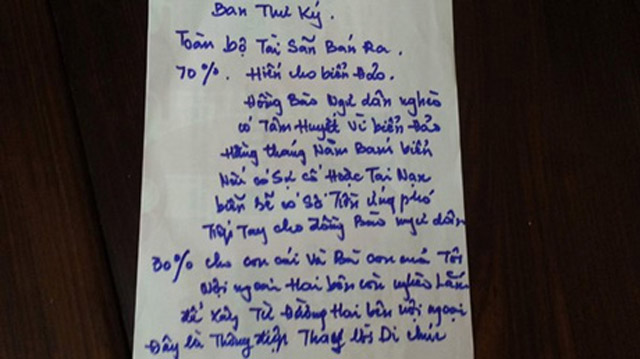 Ban Thư Ký.
Toàn bộ Tài Sản Bán Ra.
70%. Hiến cho biển Đảo.
Đồng Bào Ngư dân nghèo
có Tâm Huyết Vì biển Đảo
Hằng tháng Năm Bám biển
Nếu có Sự cố Hoặc Tai Nạn
biển sẽ có Số Tiền ứng phó
Tiếp Tay cho Đồng Bào ngư dân
30% cho con cái Và Bà con của Tôi
Nội ngoại Hai bên còn nghèo Lắm
để xây Từ Đường Hai bên nội ngoại
Đây là Thông điệp Thay lời Di chúc